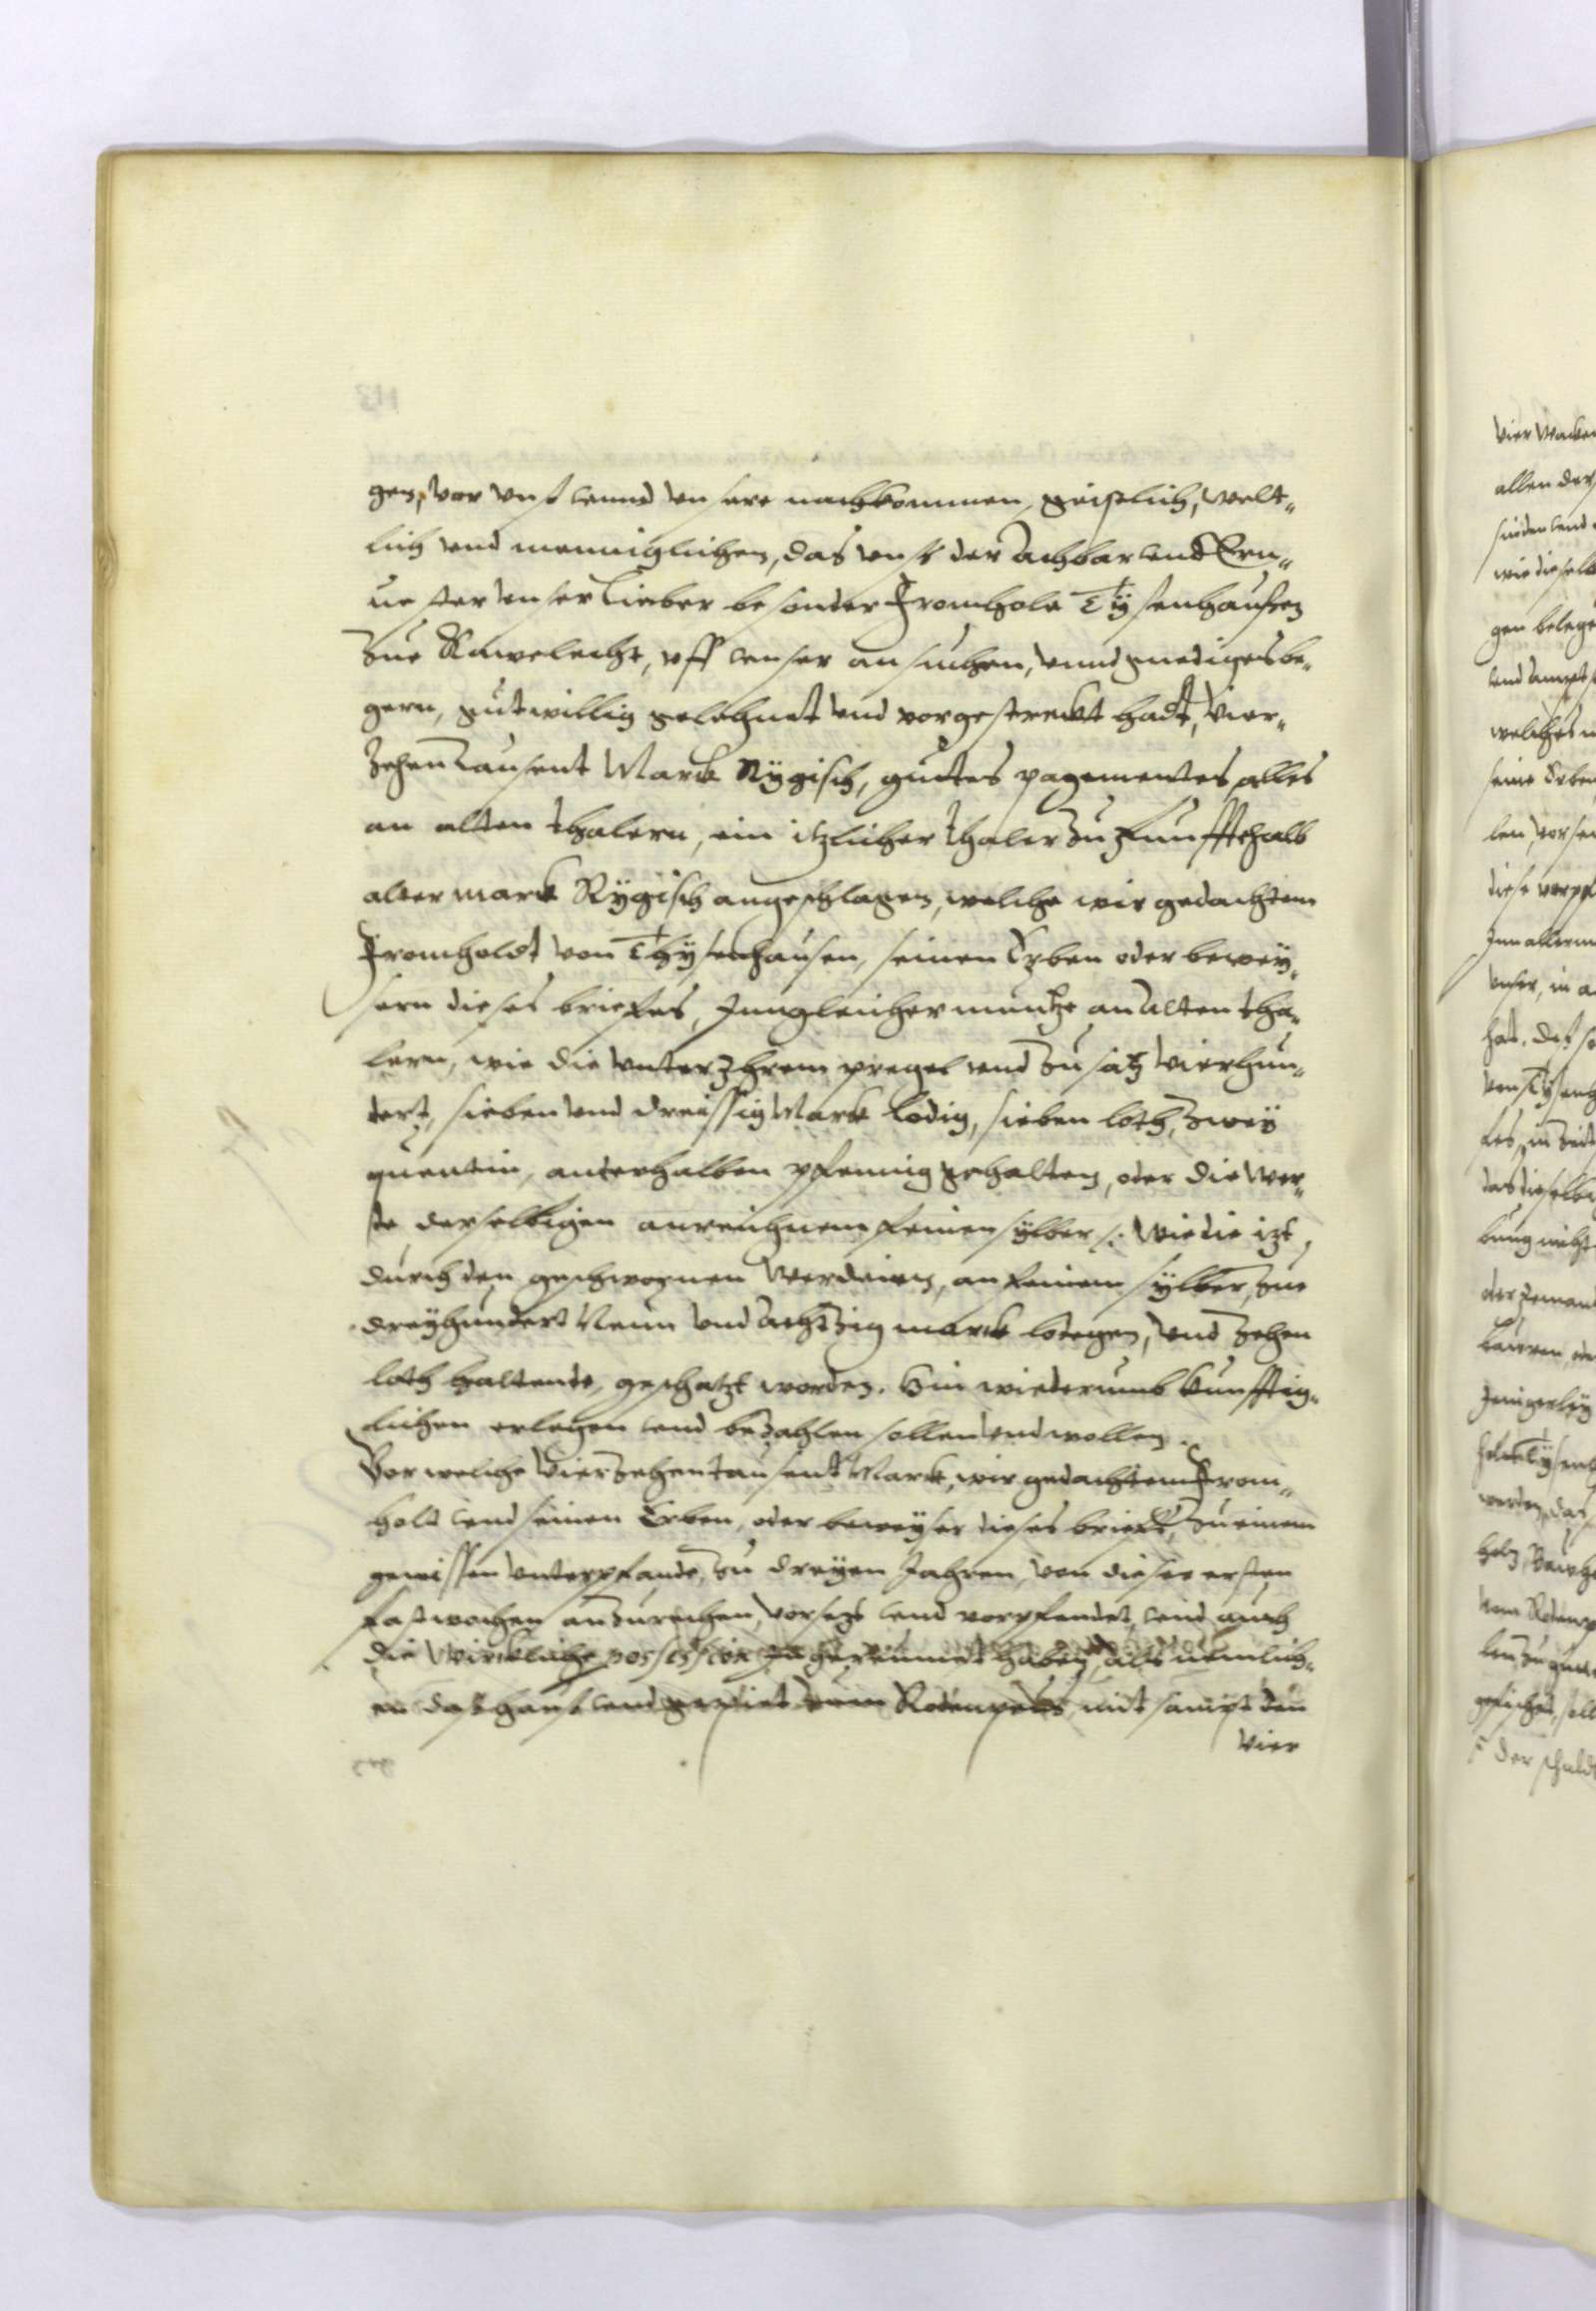 gen, vor vnß vnnd vnsere nachkommen, geistlich, welt-
lich vnd menniglichen, das vnß der Achbar vnd Ern-
uester vnser Lieber besonder Fromholt Tÿsenhausen
zue Kawelecht, vff vnser ansuchen, vnnd gnediges be-
gern, gutwillig gelehnet vnd vorgestreckt hadt, Vier-
zehen tausent Marck Rÿgisch, guttes pagementes alles
an alten thalern, ein itzlicher thaler zu funffthalb
alter marck Rÿgisch angeschlagen, welche wir gedachtem
Fromholdt von Thÿsenhausen, seinen Erben oder bewey-
sern dieses brieffes, Jnn gleicher muntze an Alten tha-
lern, wie die vnter Jhrem pregel vnd zusatz vierhun-
dert, sieben vnd dreissig Marck lodig, sieben loth, zweÿ
quentin, anderhalben pfennig gehalten, oder die wer-
de derselbigen an reichnem feinen sÿlber /: Wie die itzt
durch den geschwornen Werdein, an feinem sÿlber, zue
dreÿhundert Neun vnd Achtzig marck lodegen, vnd zehen
loth haltende, geschatzt worden. Hin wiederumb kunfftig-
lichen erlegen vnd bezahlen sollen vnd wollen.
Vor welche Vierzehen tausent Marck, wir gedachtem From-
holt vnd seinen Erben, oder beweÿser dieses brieffs, zu einem
gewissen vnterpfande, zu dreyen Jahren, von dieser ersten
fastwochen anzurechen, vorsetzt vnd vorpfendet, vnd auch
die Wirckliche possession gereumet haben, als nemlich-
en das hauß vnd gepiet Rodenpois, mit sampt den
Vier